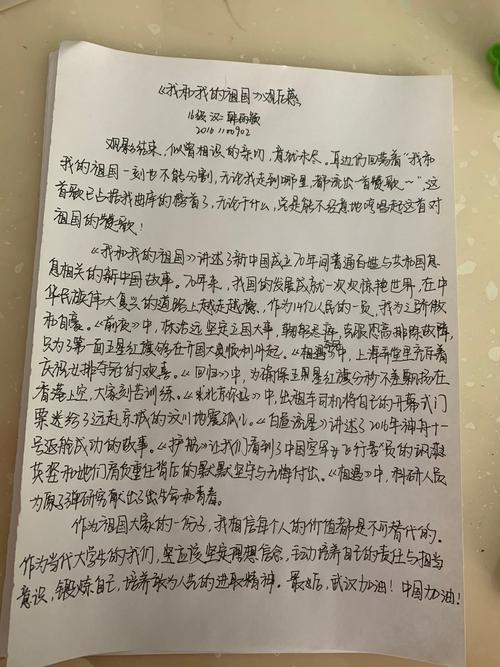 《我和我的祖国》观后感
16级 汉二 韩雨欣
2016110902
观影结束，似曾相识的亲切，意犹未尽。耳边仍回荡着“我和
我的祖国一刻也不能分割，无论我走到哪里，都流出一首赞歌~”，这
首歌已占据我曲库的榜首了，无论干什么，总是能不经意地哼唱起这首对
祖国的赞歌！
《我和我的祖国》讲述了新中国成立70年间普通百姓与共和国息
息相关的新中国故事。70年来，我国的发展成就一次次惊艳世界，在中
华民族伟大复兴的道路上越走越稳，作为14亿人民的一员，我为之骄傲
和自豪。《前夜》中，林治远坚定立国大事，克服恐高排除故障，
只为了第一面五星红旗能够在开国大典顺利升起。《夺冠》中，上海弄堂里充斥着
庆祝女排夺冠的欢喜。《回归》中，为确保五星红旗分秒不差飘扬在
香港上空，大家刻苦训练。《北京你好》中，出租车司机将自己的开幕式门
票送给了远赴京城的汶川地震孤儿。《白昼流星》讲述了2016年神舟十一
号返航成功的故事。《护航》让我们看到了中国空军女飞行员的飒爽
英姿和她们肩负重任背后的默默坚守与无悔付出。《相遇》中，科研人员
为原子弹研究献出了生命和青春。
作为祖国大家的一份子，我相信每个人的价值都是不可替代的。
作为当代大学生的我们，更应该坚定理想信念，主动培养自己的责任与担当
意识，锻炼自己，培养敢为人先的进取精神。最后，武汉加油！中国加油！